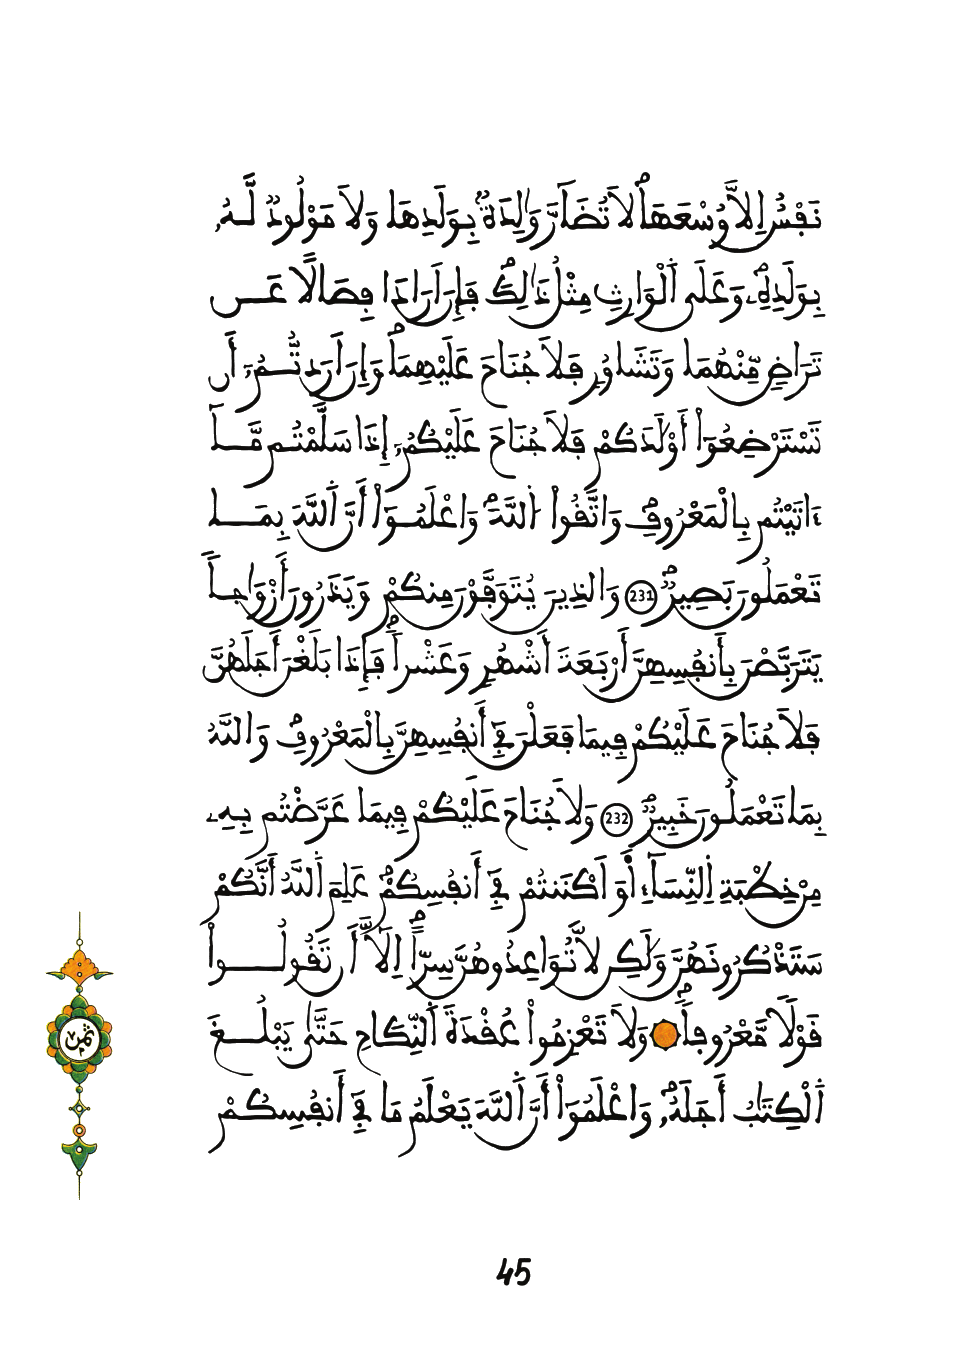 نَفْسٌ إِلَّا وُسْعَهَا لَا تُضَآرَّ وَٰلِدَةٌ بِوَلَدِهَا وَلَا مَوْلُودٌ لَّهُۥ
بِوَلَدِهِۦ وَعَلَى اَ۬لْوَارِثِ مِثْلُ ذَٰلِكَ فَإِنْ أَرَادَا فِصَالًا عَن
تَرَاضٍ مِّنْهُمَا وَتَشَاوُرٍ فَلَا جُنَاحَ عَلَيْهِمَا وَإِنْ أَرَدتُّمُۥٓ أَن
تَسْتَرْضِعُوٓاْ أَوْلَٰدَكُمْ فَلَا جُنَاحَ عَلَيْكُمُۥٓ إِذَا سَلَّمْتُم مَّآ
ءَاتَيْتُم بِالْمَعْرُوفِ وَاتَّقُواْ اُ۬للَّهَ وَاعْلَمُوٓاْ أَنَّ اَ۬للَّهَ بِمَا
تَعْمَلُونَ بَصِيرٌ 231 وَالذِينَ يُتَوَفَّوْنَ مِنكُمْ وَيَذَرُونَ أَزْوَاجاً
يَتَرَبَّصْنَ بِأَنفُسِهِنَّ أَرْبَعَةَ أَشْهُرٍ وَعَشْراً فَإِذَا بَلَغْنَ أَجَلَهُنَّ
فَلَا جُنَاحَ عَلَيْكُمْ فِيمَا فَعَلْنَ فِےٓ أَنفُسِهِنَّ بِالْمَعْرُوفِ وَاللَّهُ
بِمَا تَعْمَلُونَ خَبِيرٌ 232 وَلَا جُنَاحَ عَلَيْكُمْ فِيمَا عَرَّضْتُم بِهِۦ
مِنْ خِطْبَةِ اِ۬لنِّسَآءِ اَ۬وَ اَكْنَنتُمْ فِےٓ أَنفُسِكُمْ عَلِمَ اَ۬للَّهُ أَنَّكُمْ
سَتَذْكُرُونَهُنَّ وَلَٰكِن لَّا تُوَاعِدُوهُنَّ سِرّاً اِلَّآ أَن تَقُولُواْ
قَوْلًا مَّعْرُوفاً وَلَا تَعْزِمُواْ عُقْدَةَ اَ۬لنِّكَاحِ حَتَّىٰ يَبْلُغَ
اَ۬لْكِتَٰبُ أَجَلَهُۥ وَاعْلَمُوٓاْ أَنَّ اَ۬للَّهَ يَعْلَمُ مَا فِےٓ أَنفُسِكُمْ
ثمن
45